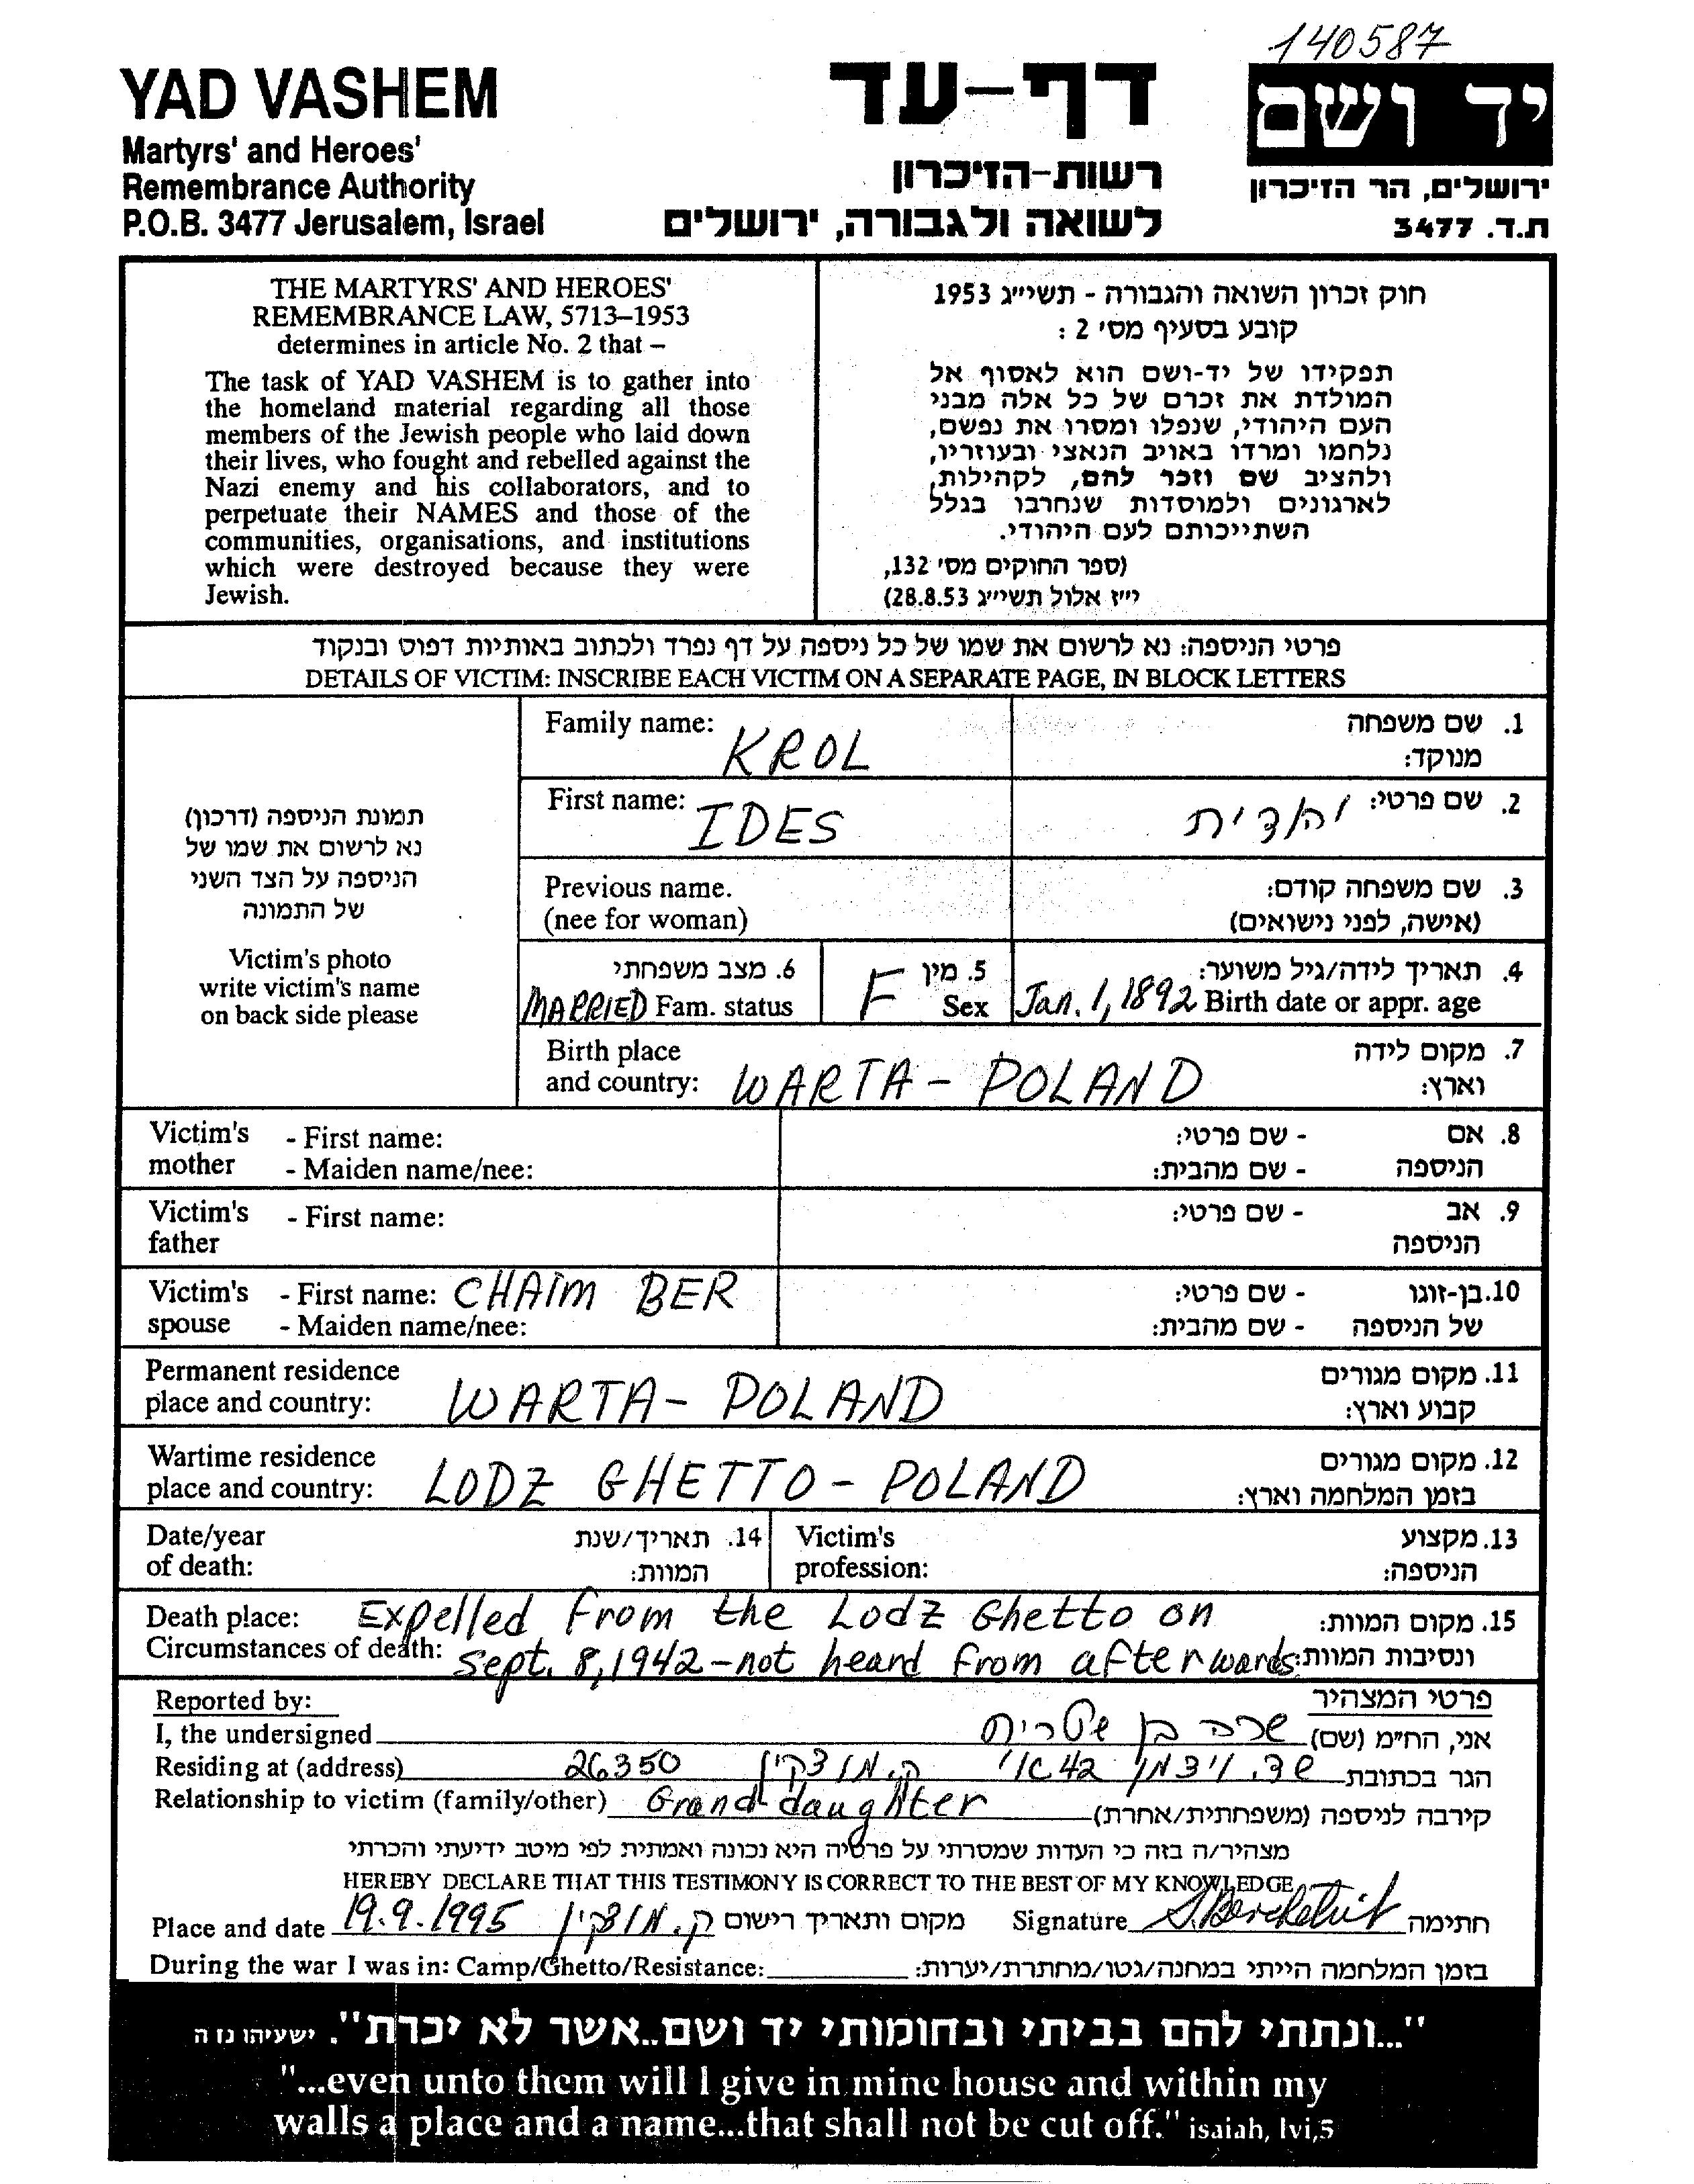 140587
YAD VASHEM
Martyrs' and Heroes'
Remembrance Authority
P.O.B. 3477 Jerusalem, Israel
דף-עד
רשות-הזיכרון
לשואה ולגבורה, ירושלים
יד ושם
ירושלים, הר הזיכרון
ת.ד. 3477
THE MARTYRS' AND HEROES'
REMEMBRANCE LAW, 5713–1953
determines in article No. 2 that –
The task of YAD VASHEM is to gather into
the homeland material regarding all those
members of the Jewish people who laid down
their lives, who fought and rebelled against the
Nazi enemy and his collaborators, and to
perpetuate their NAMES and those of the
communities, organisations, and institutions
which were destroyed because they were
Jewish.
חוק זכרון השואה והגבורה - תשי״ג 1953
קובע בסעיף מס׳ 2 :
תפקידו של יד-ושם הוא לאסוף אל
המולדת את זכרם של כל אלה מבני
העם היהודי, שנפלו ומסרו את נפשם,
נלחמו ומרדו באויב הנאצי ובעוזריו,
ולהציב שם וזכר להם, לקהילות,
לארגונים ולמוסדות שנחרבו בגלל
השתייכותם לעם היהודי.
(ספר החוקים מס׳ 132,
י״ז אלול תשי״ג 28.8.53)
פרטי הניספה: נא לרשום את שמו של כל ניספה על דף נפרד ולכתוב באותיות דפוס ובנקוד
DETAILS OF VICTIM: INSCRIBE EACH VICTIM ON A SEPARATE PAGE, IN BLOCK LETTERS
תמונת הניספה (דרכון)
נא לרשום את שמו של
הניספה על הצד השני
של התמונה
Victim's photo
write victim's name
on back side please
Family name: KROL 1. שם משפחה
מנוקד:
First name: IDES 2. שם פרטי: יהודית
Previous name. 3. שם משפחה קודם:
(nee for woman) (אישה, לפני נישואים)
6. מצב משפחתי 5. מין 4. תאריך לידה/גיל משוער:
MARRIED Fam. status F Sex Jan. 1, 1892 Birth date or appr. age
Birth place 7. מקום לידה
and country: WARTA - POLAND וארץ:
Victim's - First name: - שם פרטי: 8. אם
mother - Maiden name/nee: - שם מהבית: הניספה
Victim's - First name: - שם פרטי: 9. אב
father הניספה
Victim's - First name: CHAIM BER - שם פרטי: 10. בן-זוגו
spouse - Maiden name/nee: - שם מהבית: של הניספה
Permanent residence 11. מקום מגורים
place and country: WARTA - POLAND קבוע וארץ:
Wartime residence 12. מקום מגורים
place and country: LODZ GHETTO - POLAND בזמן המלחמה וארץ:
Date/year 14. תאריך/שנת Victim's 13. מקצוע
of death: המוות: profession: הניספה:
Death place: Expelled from the Lodz Ghetto on 15. מקום המוות:
Circumstances of death: Sept. 8, 1942 - not heard from afterwards ונסיבות המוות:
Reported by: פרטי המצהיר
I, the undersigned אני, החי״מ (שם) שרה בן שטרית
Residing at (address) הגר בכתובת שד. ויצמן 42 ק. מוצקין 26350
Relationship to victim (family/other) Granddaughter קירבה לניספה (משפחתית/אחרת)
מצהיר/ה בזה כי העדות שמסרתי על פרטיה היא נכונה ואמתית לפי מיטב ידיעתי והכרתי
HEREBY DECLARE THAT THIS TESTIMONY IS CORRECT TO THE BEST OF MY KNOWLEDGE
Place and date 19.9.1995 ק. מוצקין מקום ותאריך רישום Signature חתימה
During the war I was in: Camp/Ghetto/Resistance: בזמן המלחמה הייתי במחנה/גטו/מחתרת/יערות:
"...ונתתי להם בביתי ובחומותי יד ושם..אשר לא יכרת". ישעיהו נז ה
"...even unto them will I give in mine house and within my
walls a place and a name...that shall not be cut off." isaiah, lvi,5